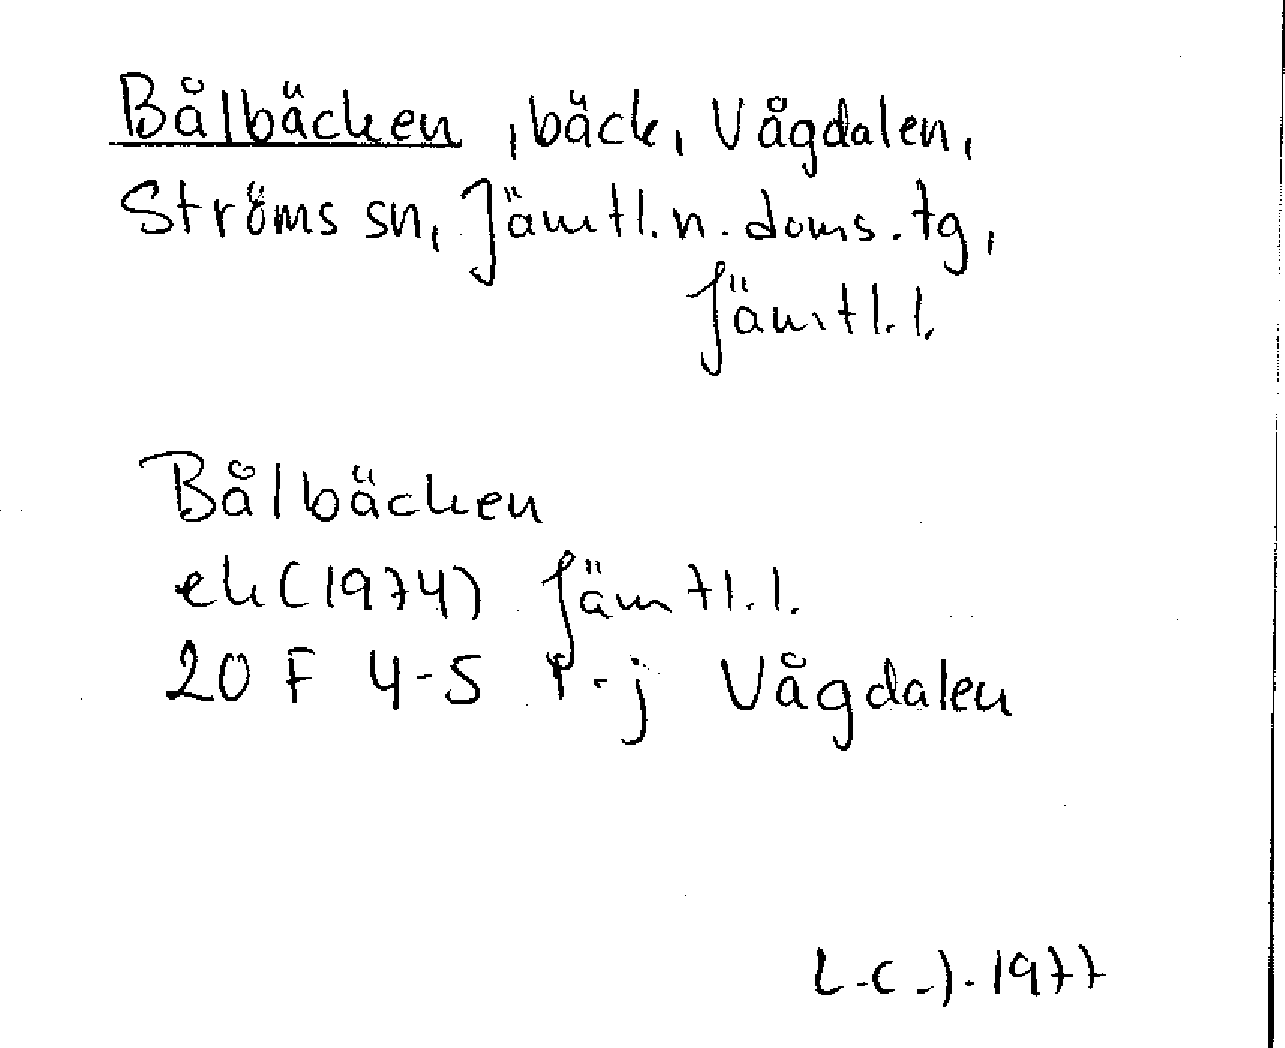 Bålbäcken, bäck, Vågdalen,
Ströms sn, Jämtl. n. doms. tg,
Jämtl. l.
Bålbäcken
ek (1974) Jämtl. l.
20 F 4-5 i-j Vågdalen
L.C.J. 1977